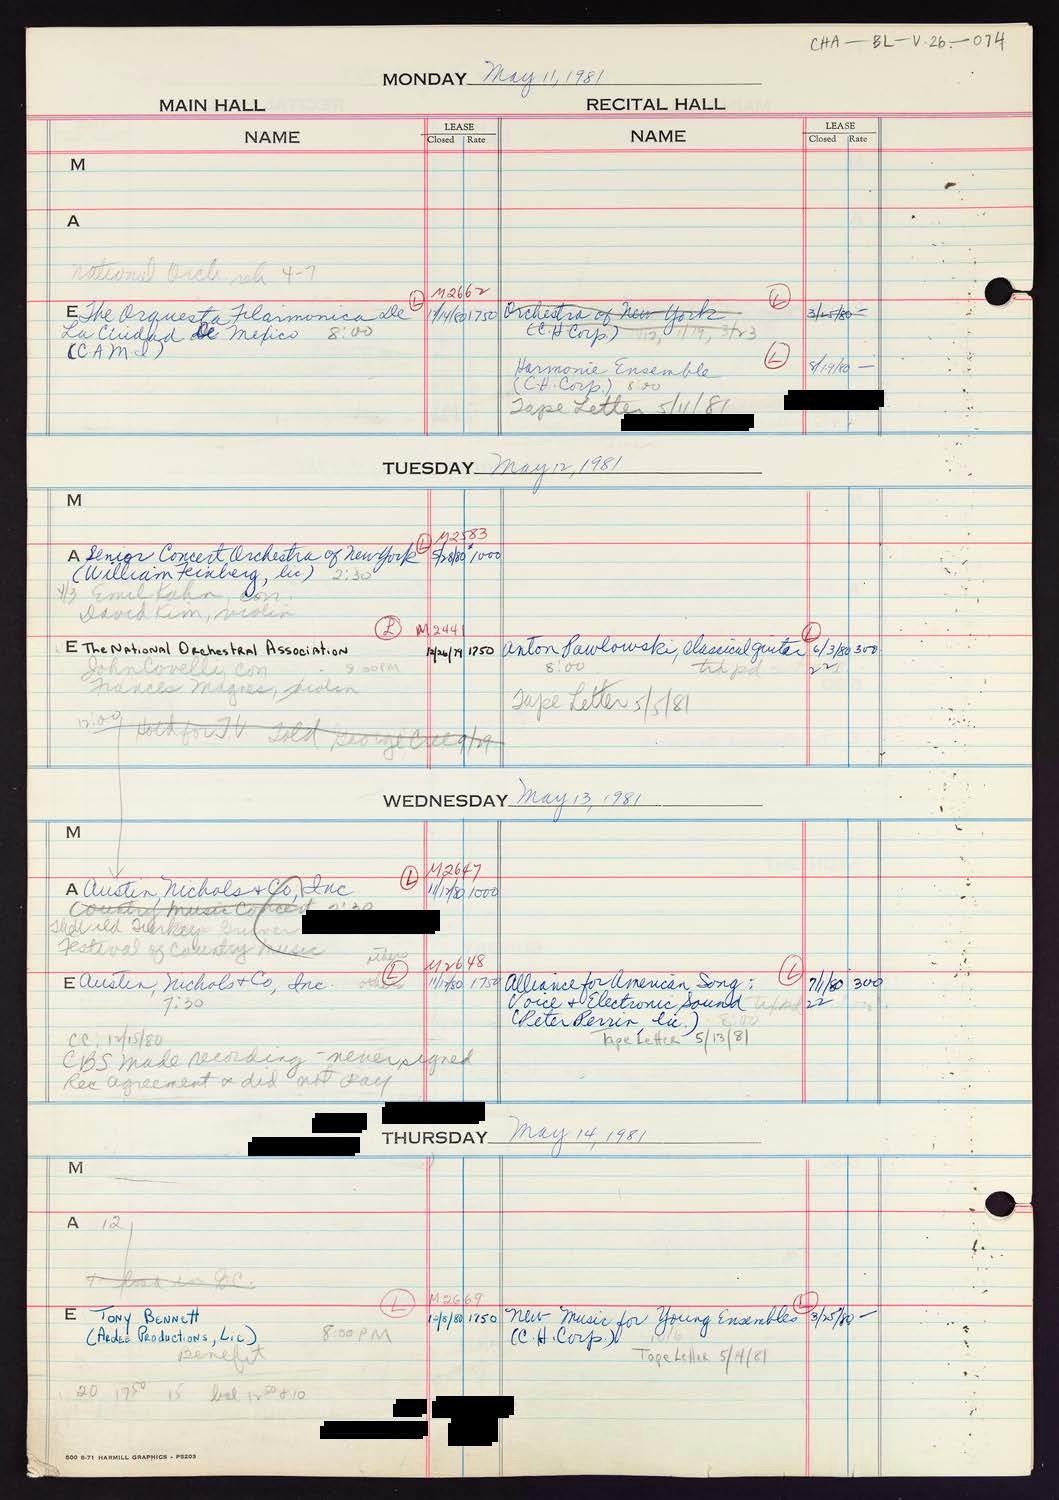 CHA-BL-V.26-074
MONDAY May 11, 1981
MAIN HALL
RECITAL HALL
NAME
LEASE
Closed Rate
NAME
LEASE
Closed Rate
M
A
National Orch. reh 4-7
M2662
E The Orquesta Filarmonica De L 1/14/80 1750
La Ciudad De Mexico 8:00
(CAMI)
Orchestra of New York L 3/25/80 -
(C.H Corp) 1/19, 3/23
Harmonie Ensemble L 8/19/80 -
(C.H. Corp.) 8:00
Tape Letter 5/11/81
TUESDAY May 12, 1981
M
M2583
A Senior Concert Orchestra of New York L 5/28/80 1000
(William Feinberg, lic.) 2:30
4/3 Emil Kahn, con.
David Kim, violin
L M2441
E The National Orchestral Association 12/26/79 1750
John Covelli, con 8:00PM
Frances Magnes, violin
12:00 Hold for TV Told George Cree 9/29
Anton Pawlowski, Classical guitar L 6/3/80 300
8:00
Tape Letter 5/5/81
WEDNESDAY May 13, 1981
M
M2647
A Austin, Nichols & Co, Inc L 11/17/80 1000
Country Music Concert 2:30
Wild Turkey
Festival of Country Music
M2648
E Austin, Nichols & Co, Inc. L 11/17/80 1750
7:30
CC: 12/15/80
CBS made recording - never signed
Rec agreement & did not pay
Alliance for American Song: L 7/1/80 300
Voice & Electronic Sound
(Peter Perrin, lic.) 8:00
Tape Letter 5/13/81
THURSDAY May 14, 1981
M
A 12
load in
M2669
E Tony Bennett L 12/8/80 1750
(Ardee Productions, Lic) 8:00 PM
Benefit
20 1750 15
New Music for Young Ensembles L 3/25/80 -
(C.H. Corp.)
Tape Letter 5/14/81
500 8-71 HARMILL GRAPHICS - PS203